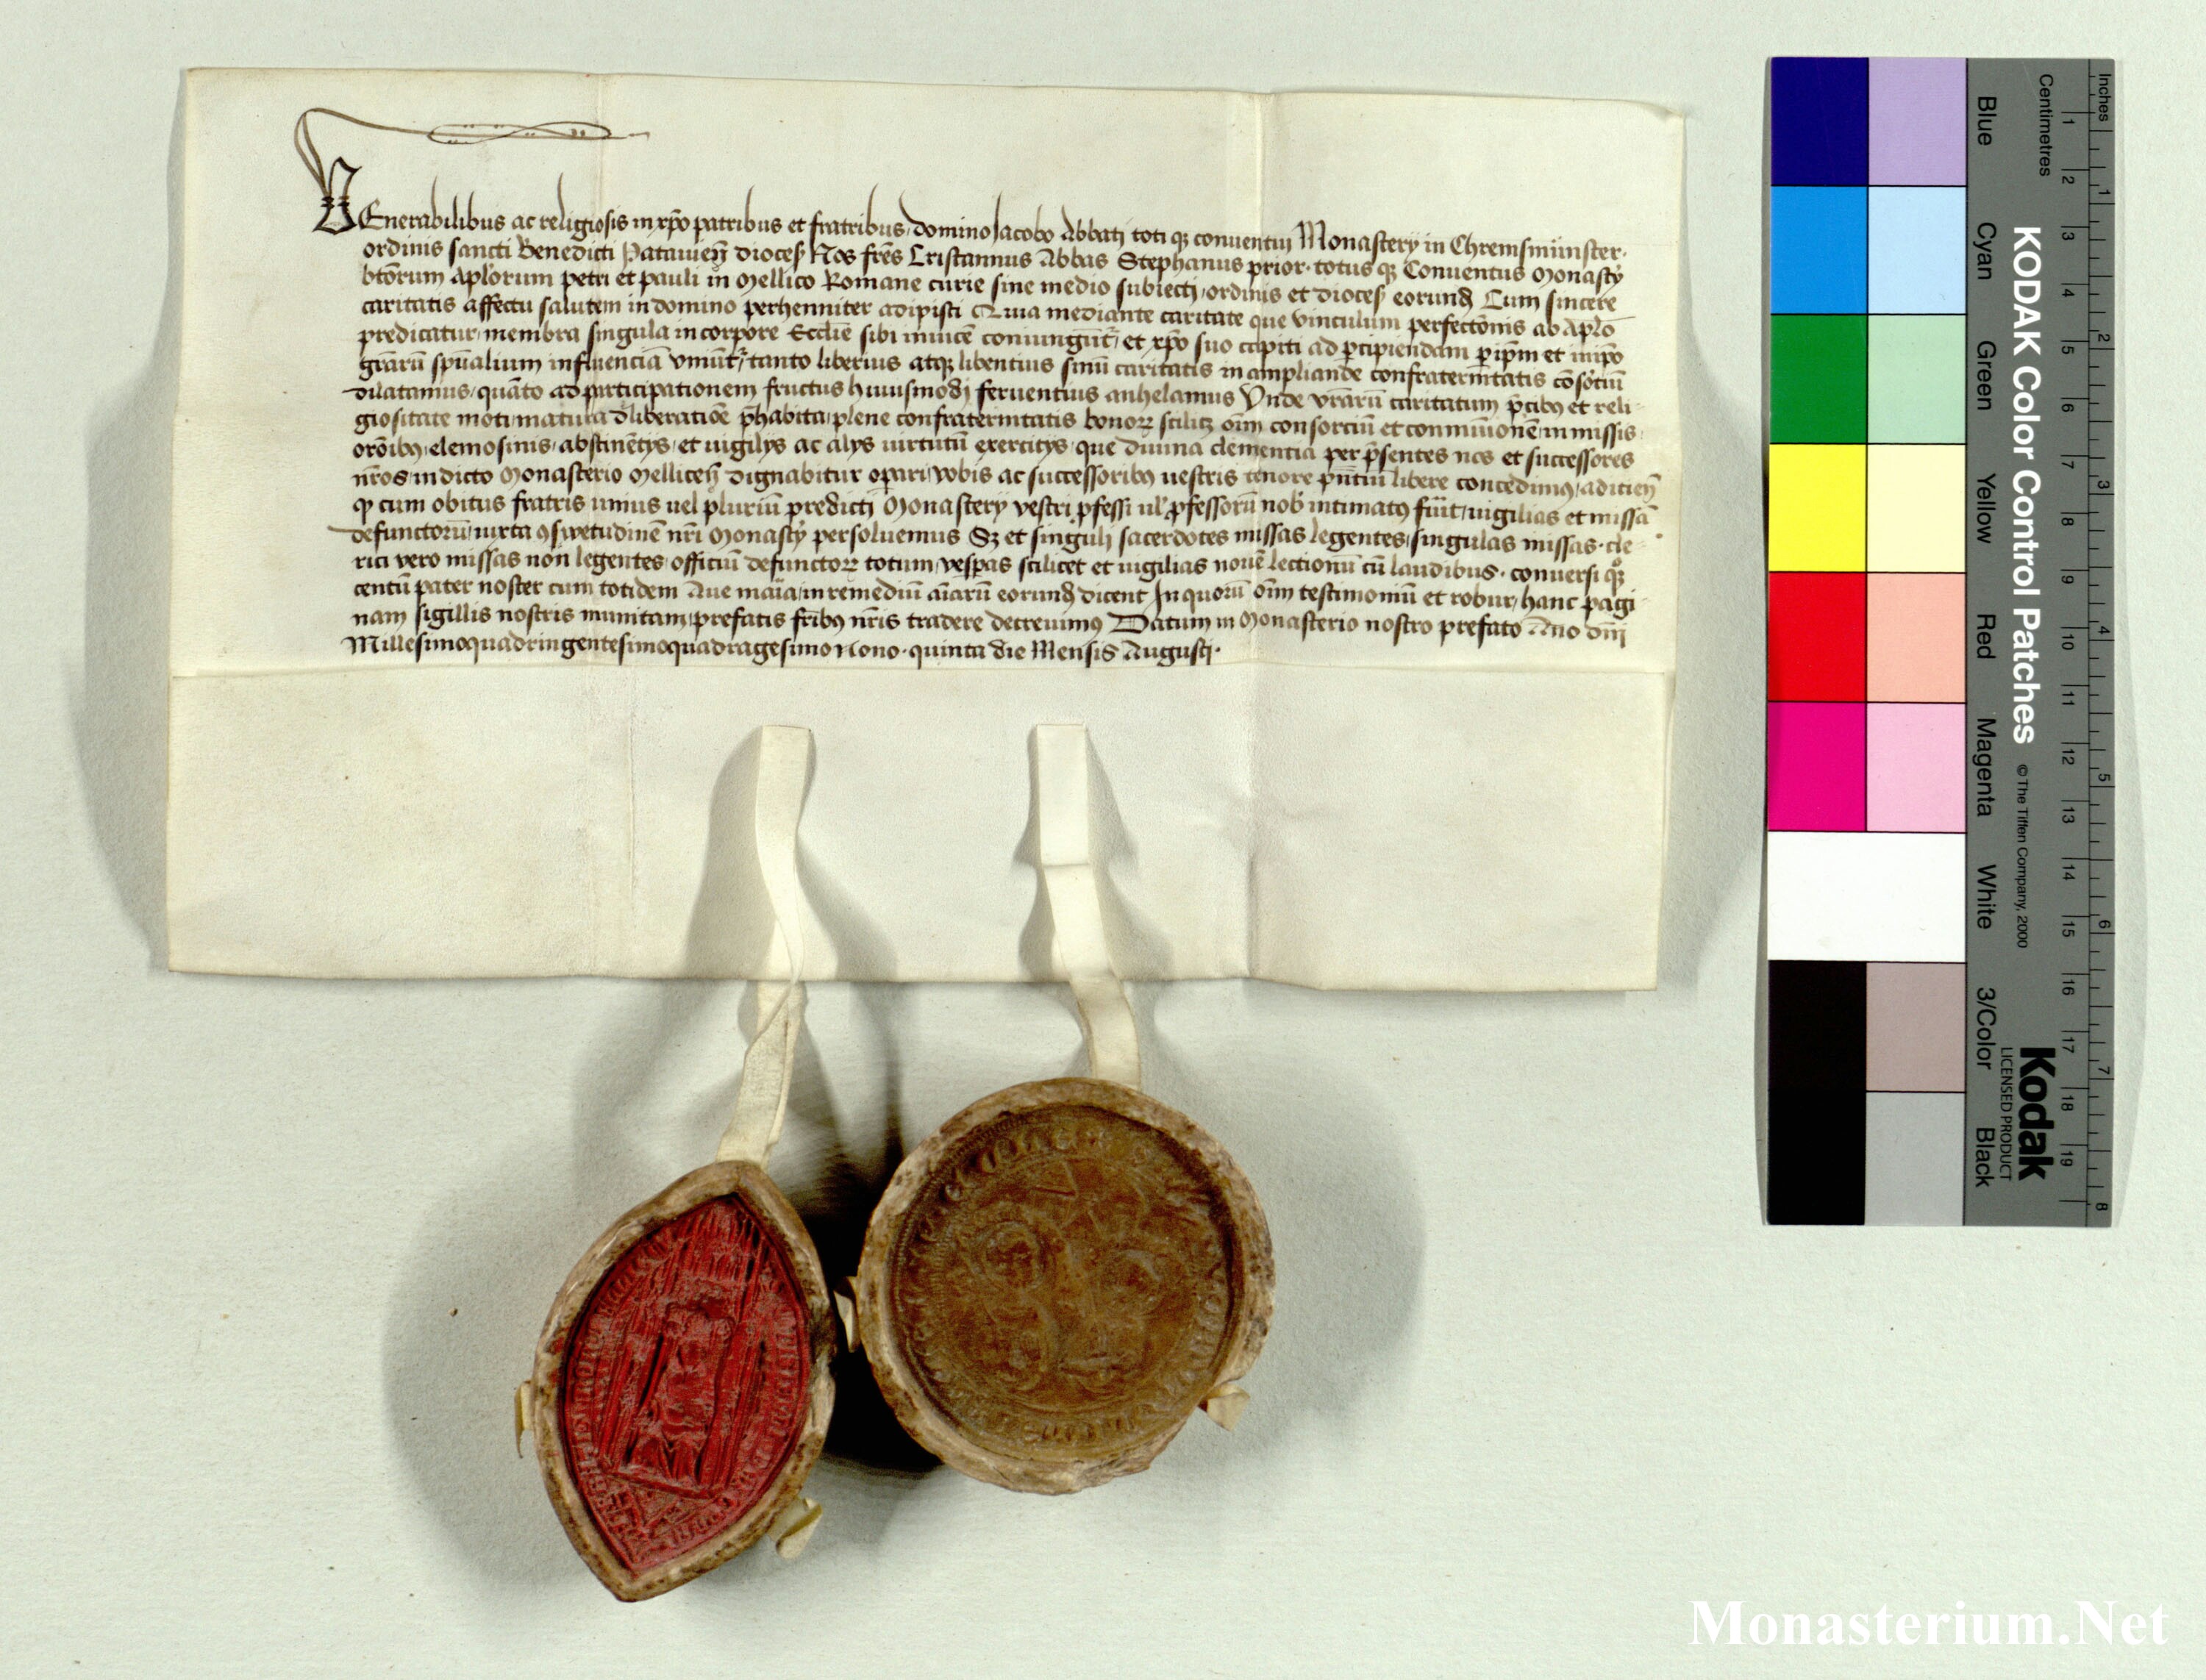 VEnerabilibus ac religiosis in xp̄o patribus et fratribus, domino Jacobo Abbati toti qꝫ conuentui Monastery in Chremsmünster·
ordinis sancti Benedicti Patauien̄ dioces̄ Nos fr̄es Cristannus Abbas Stephanus prior· totus qꝫ Conuentus Monastȳ
btōrum Aplōrum petri et pauli in Mellico Romane curie sine medio subiecti, ordinis et dioces̄ eorund̄ Cum sincere
caritatis affectu salutem in domino perhenniter adipisci Quia mediante caritate que vinculum perfectōnis ab Aplō
predicatur, membra singula in corpore Ecclīe sibi inuicē coniungūt̄, et xp̄o suo capiti ad ꝑcipiendam ꝑ ip̄m et in ip̄o
grār̄ū spūalium influenciā vniūt̄, tanto liberius atqꝫ libentius sinū caritatis in ampliande confraternitatis cōsōtiū
dilatamus, quāto ad participationem fructus huiusmodi feruentius anhelamus Vnde vrārū caritatum p̄cibꝰ et reli-
giositate moti, matura dliberatiōe p̄habita, plene confraternitatis bonoꝝ scilicꝫ oīm consorciū et conmūionē, in missis
orōibꝰ, elemosinis, abstinētys, et uigilys ac alys uirtutū exercitys, que diuina clementia per p̄sentes nos et successores
nr̄os, in dicto Monasterio Mellicen̄ dignabitur oꝑari, vobis ac successoribꝰ uestris tenore pn̄tiū libere concedimꝰ, aditien̄
ꝙ cum obitus fratris unius uel pluriū predicti Monastery vestri ꝓfessi ul' ꝓfessorū nob' intimatꝰ fūit, uigilias et missā
defunctorū, iuxta ꝯswetudinē nr̄i Monastȳ persoluemus Sꝫ et singuli sacerdotes missas legentes, singulas missas· cle-
rici vero missas non legentes, officiū defunctoꝝ totum, vesꝑas scilicet et uigilias nouē lectionū cū laudibus· conuersi qͦꝫ
centū pater noster cum totidem Aue maīa, in remediū aīarū eorund̄ dicent In quorū oīm testimoniū et robur, hanc pagi-
nam sigillis nostris munitam, prefatis fr̄ibꝰ nr̄is tradere decreuimꝰ Datum in Monasterio nostro prefato Āno dn̄i
Millesimoquadringentesimoquadragesimo Nono· quinta die Mensis Augusti·
KODAK Color Control Patches
© The Tiffen Company, 2000
Kodak
LICENSED PRODUCT
Inches
Centimetres
1 2 3 4 5 6 7 8
1 2 3 4 5 6 7 8 9 10 11 12 13 14 15 16 17 18 19
Blue
Cyan
Green
Yellow
Red
Magenta
White
3/Color
Black
Monasterium.Net